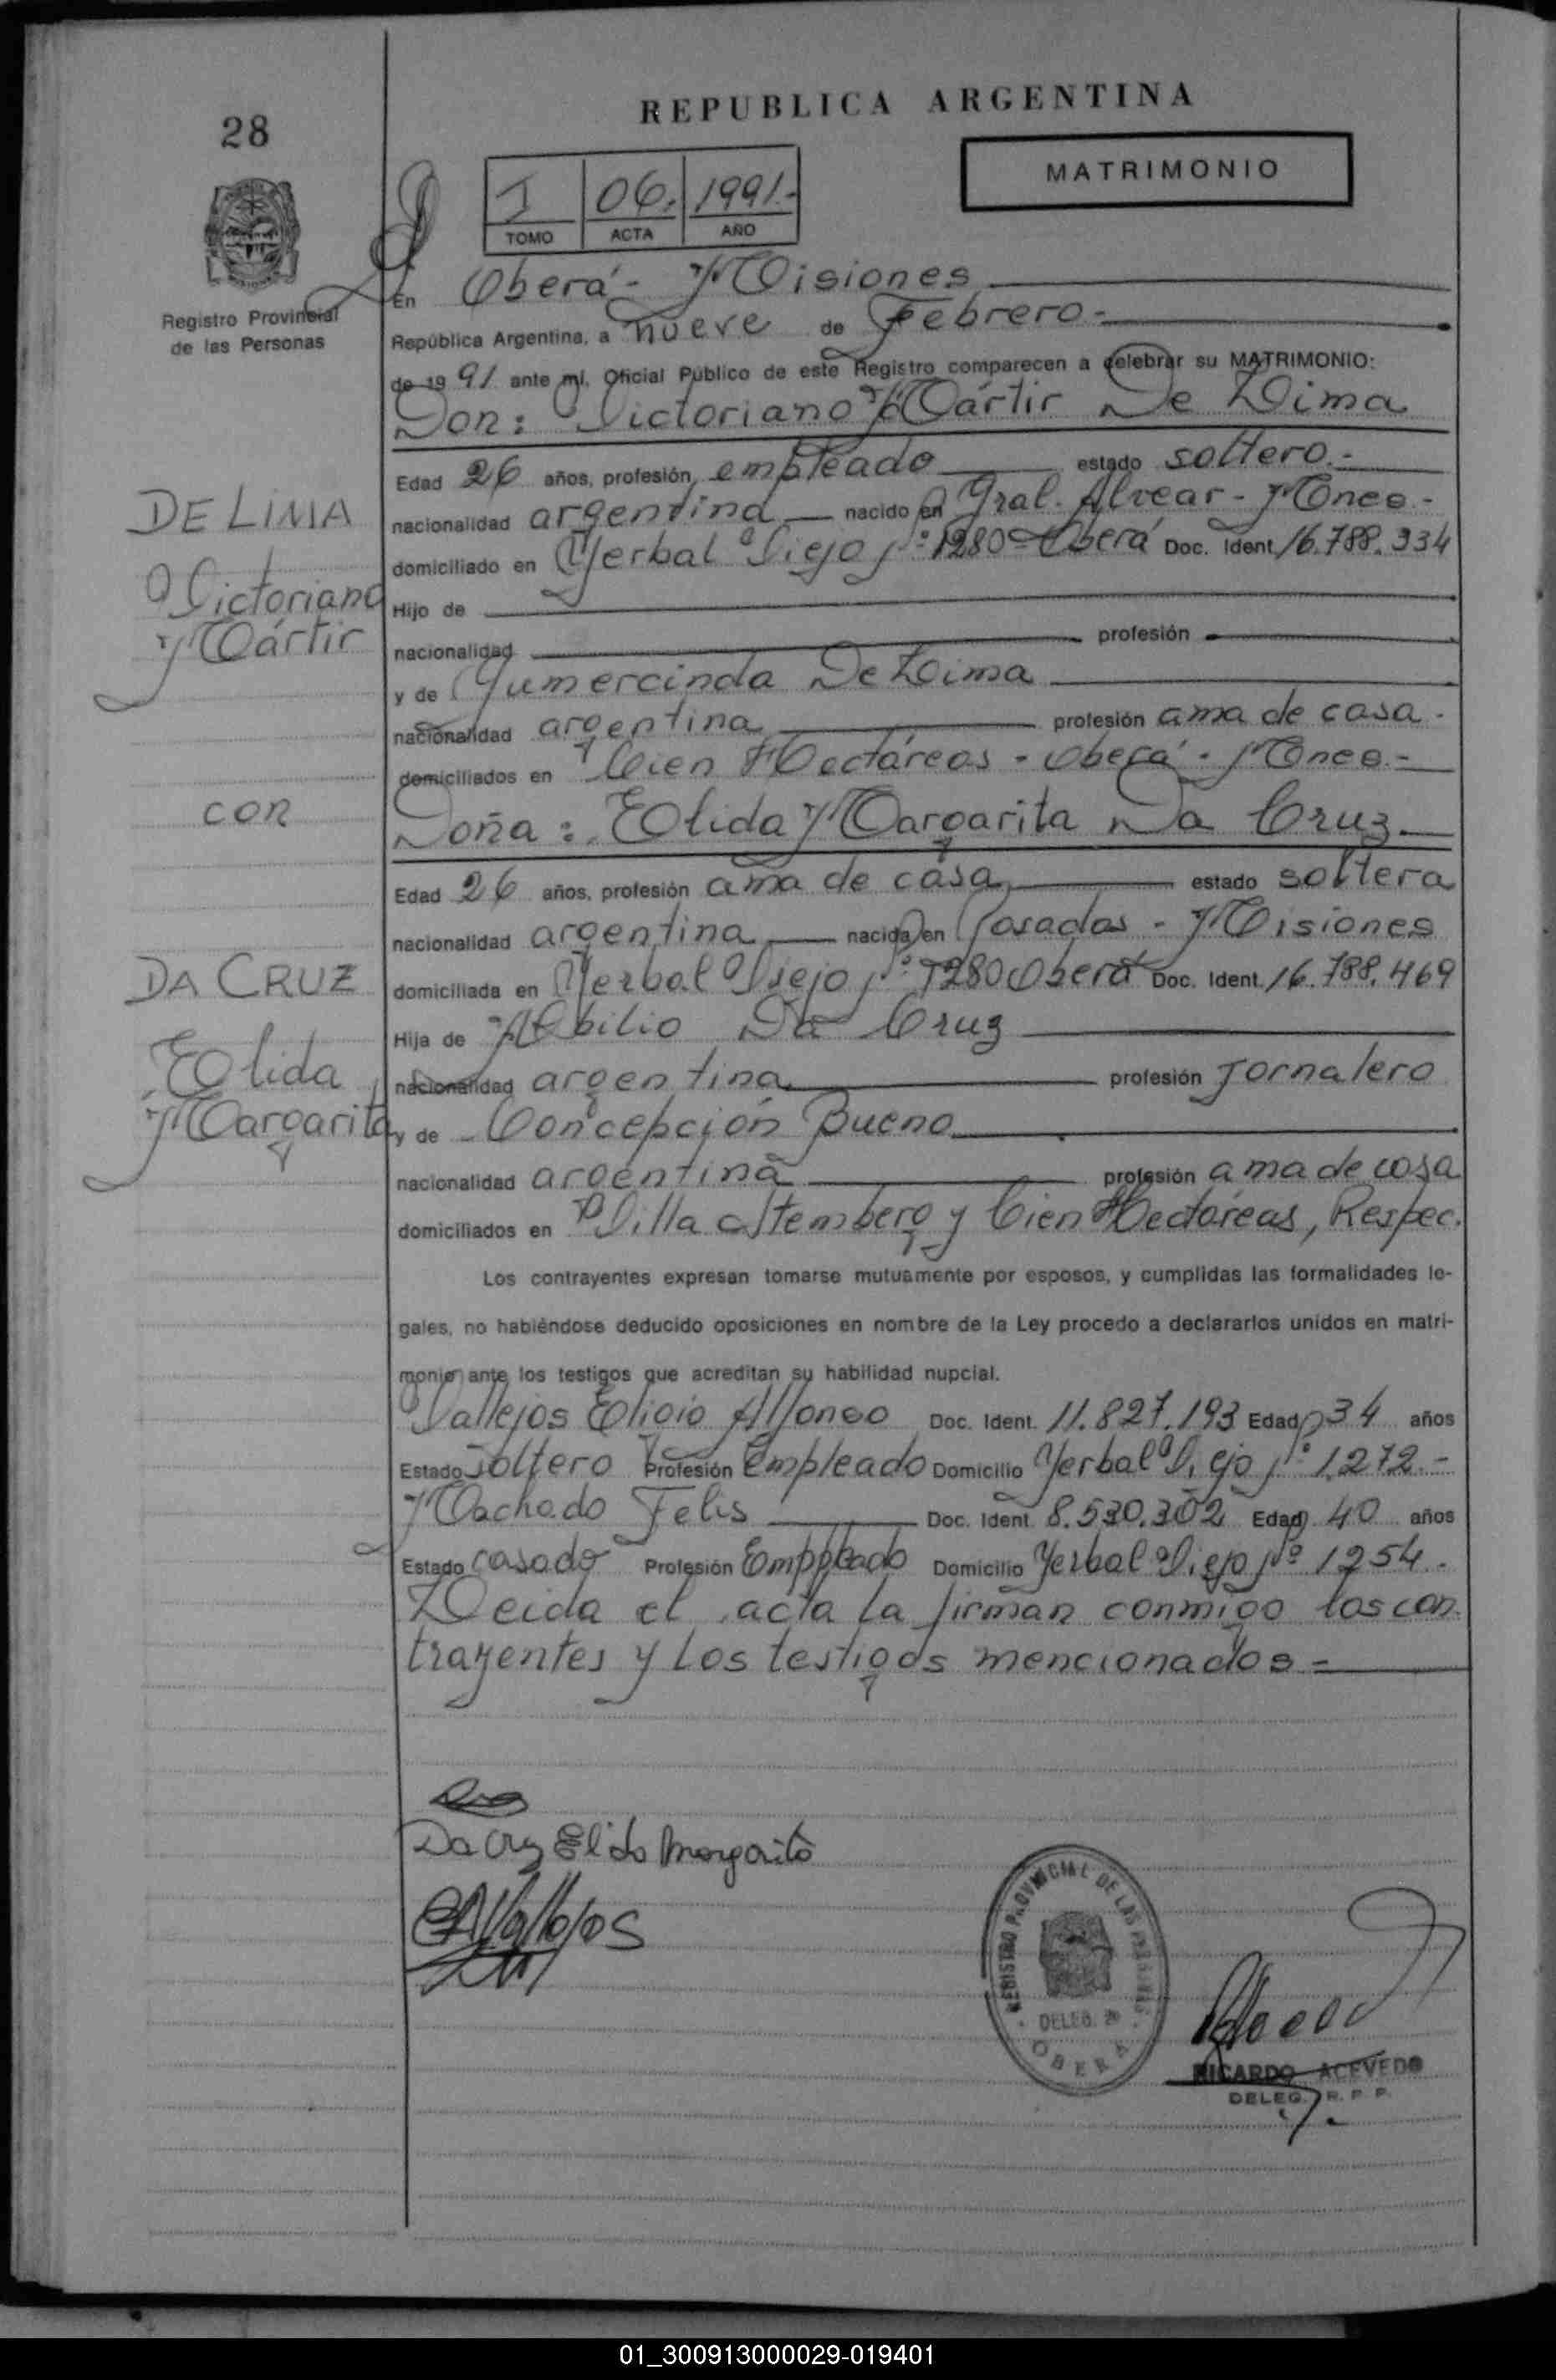 28
REPUBLICA ARGENTINA
MATRIMONIO
I 06. 1991.-
TOMO ACTA AÑO
Registro Provincial
de las Personas
En Oberá - Misiones
República Argentina, a nueve de Febrero.-
de 1991 ante mí, Oficial Público de este Registro comparecen a celebrar su MATRIMONIO:
Don: Victoriano Mártir De Lima
Edad 26 años, profesión empleado estado soltero.-
DE LIMA
nacionalidad argentina nacido en Gral. Alvear - Mnes.-
domiciliado en Yerbal Viejo Nº 1280 - Oberá Doc. Ident. 16.788.334
Victoriano
Hijo de
Mártir
nacionalidad profesión
y de Gumercinda De Lima
nacionalidad argentina profesión ama de casa.
domiciliados en Cien Hectáreas - Oberá - Mnes.-
con
Doña: Elida Margarita Da Cruz.
Edad 26 años, profesión ama de casa, estado soltera
nacionalidad argentina nacida en Posadas - Misiones
DA CRUZ
domiciliada en Yerbal Viejo Nº 1280 Oberá Doc. Ident. 16.788.469
Hija de Abilio Da Cruz
Elida
nacionalidad argentina profesión Jornalero
Margarita
y de Concepción Bueno
nacionalidad argentina profesión ama de casa
domiciliados en Villa Stemberg y Cien Hectáreas, Respec.
Los contrayentes expresan tomarse mutuamente por esposos, y cumplidas las formalidades le-
gales, no habiéndose deducido oposiciones en nombre de la Ley procedo a declararlos unidos en matri-
monio ante los testigos que acreditan su habilidad nupcial.
Vallejos Eligio Alfonso Doc. Ident. 11.827.193 Edad 34 años
Estado soltero Profesión Empleado Domicilio Yerbal Viejo Nº 1.272.-
Machado Felis Doc. Ident. 8.530.302 Edad 40 años
Estado casado Profesión Empleado Domicilio Yerbal Viejo Nº 1254.
Leida el acta la firman conmigo los con
trayentes y los testigos mencionados -
Da Cruz Elida Margarita
EAVallejos
REGISTRO PROVINCIAL DE LAS PERSONAS
DELEG. 2ª
OBERA
RICARDO ACEVEDO
DELEG. R. P. P.
01_300913000029-019401